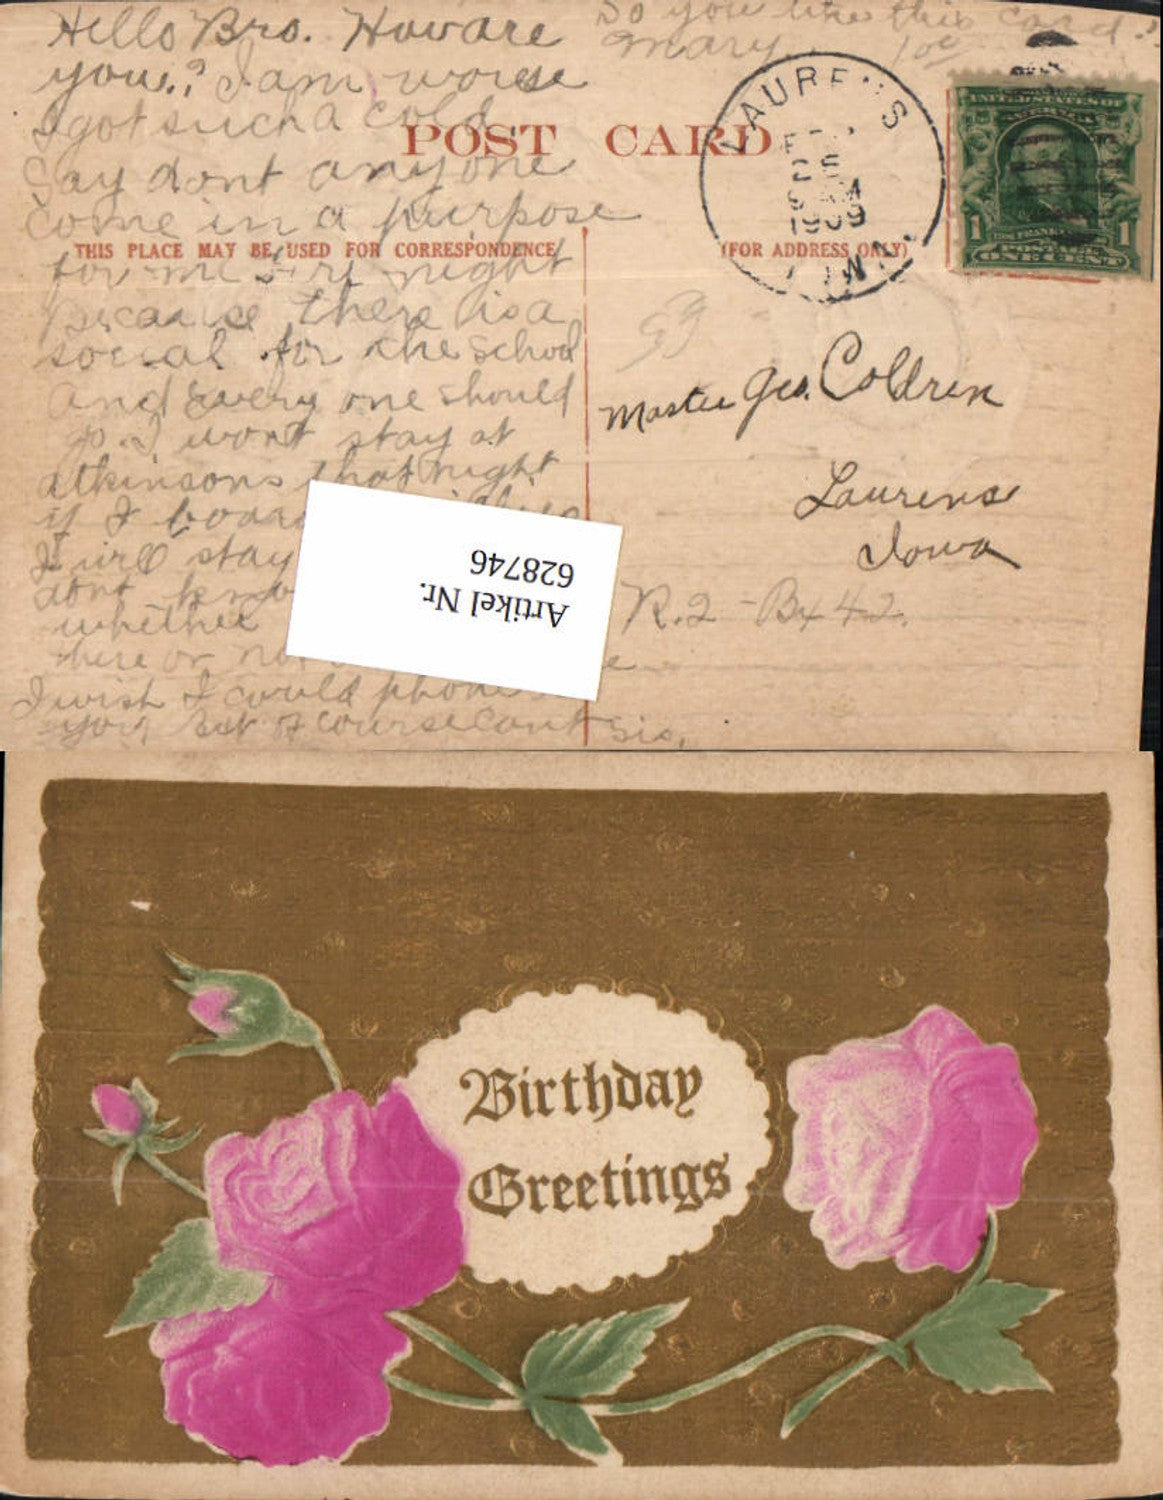 Hello Bro. How are
you.? I am worse
I got such a cold
Say dont anyone
come in a purpose
for me Fri night
because there is a
social for the school
and every one should
go. I wont stay at
atkinsons that night
if I
I will stay
dont know
whether
there or not
I wish I could phone
you, but of course cant Sis.
Do you like this card?
Mary. 10¢
POST CARD
THIS PLACE MAY BE USED FOR CORRESPONDENCE
(FOR ADDRESS ONLY)
LAURENS
5
1909
UNITED STATES OF AMERICA
1 1
POSTAGE
ONE CENT
Master Geo. Coldren
Laurens
Iowa
R.2 - Bx 42.
Artikel Nr.
628746
Birthday
Greetings